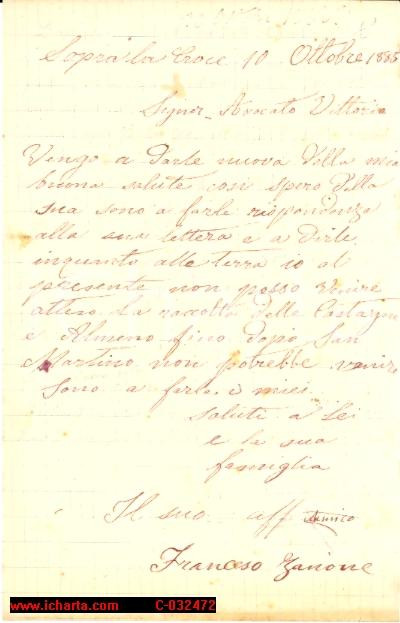 Sopra la Croce 10 Ottobre 1885
Signor Avocato Vittorio
Vengo a darle nuova della mia
buona salute cosi spero della
sua sono a farle risponidenza
alla sua lettera e a dirle
inquanto alle terra io al
presente non posso venire
atteso la racolta delle Castagne
e Almeno fino dopo San
Martino non potrebbe venire
sono a farle i miei
saluti a Lei
e la sua
famiglia
Il suo aff amico
Franceso Zanone
www.icharta.com C-032472